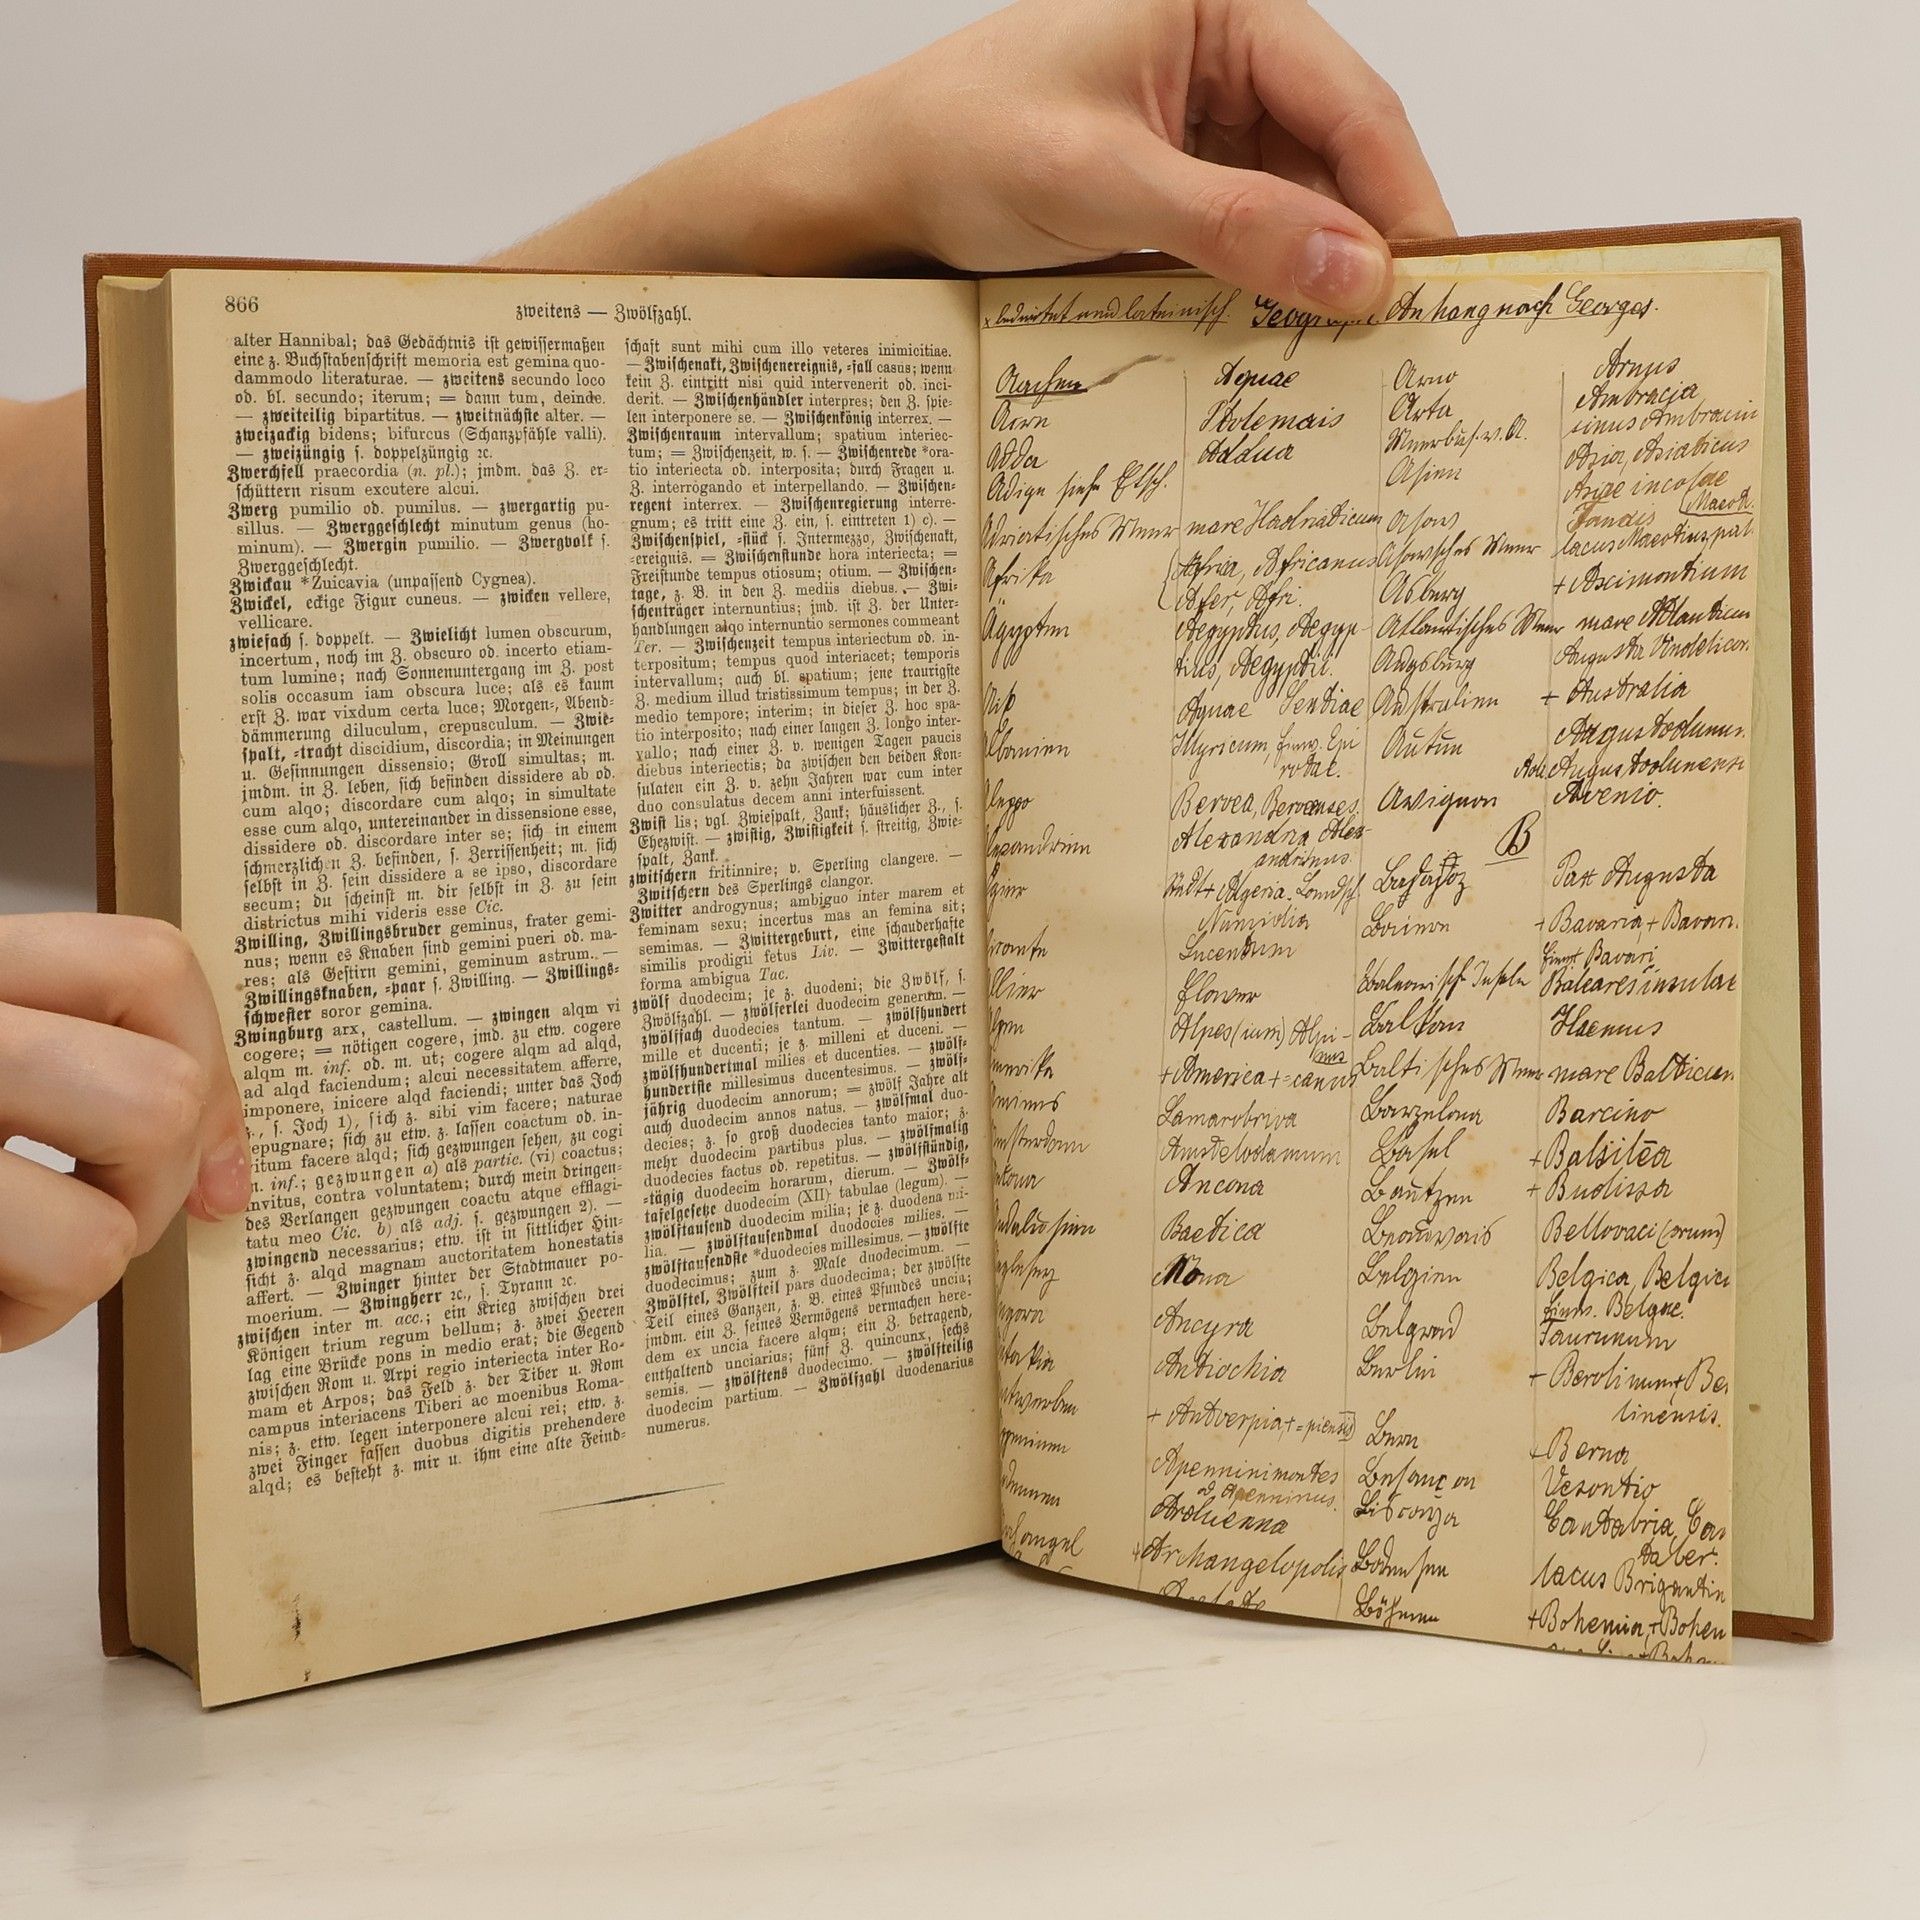 866
zweitens — Zwölfzahl.
alter Hannibal; das Gedächtnis ist gewissermaßen
eine z. Buchstabenschrift memoria est gemina quo-
dammodo literaturae. — zweitens secundo loco
od. bl. secundo; iterum; = dann tum, deinde.
— zweiteilig bipartitus. — zweitnächste alter. —
zweizackig bidens; bifurcus (Schanzpfähle valli).
— zweizüngig s. doppelzüngig ꝛc.
Zwerchfell praecordia (n. pl.); jmdm. das Z. er-
schüttern risum excutere alcui.
Zwerg pumilio od. pumilus. — zwergartig pu-
sillus. — Zwerggeschlecht minutum genus (ho-
minum). — Zwergin pumilio. — Zwergvolk s.
Zwerggeschlecht.
Zwickau *Zuicavia (unpassend Cygnea).
Zwickel, eckige Figur cuneus. — zwicken vellere,
vellicare.
zwiefach s. doppelt. — Zwielicht lumen obscurum,
incertum, noch im Z. obscuro od. incerto etiam-
tum lumine; nach Sonnenuntergang im Z. post
solis occasum iam obscura luce; als es kaum
erst Z. war vixdum certa luce; Morgen-, Abend-
dämmerung diluculum, crepusculum. — Zwie-
spalt, -tracht discidium, discordia; in Meinungen
u. Gesinnungen dissensio; Groll simultas; m.
jmdm. in Z. leben, sich befinden dissidere ab od.
cum alqo; discordare cum alqo; in simultate
esse cum alqo, untereinander in dissensione esse,
dissidere od. discordare inter se; sich in einem
schmerzlichen Z. befinden, s. Zerrissenheit; m. sich
selbst in Z. sein dissidere a se ipso, discordare
secum; du scheinst m. dir selbst in Z. zu sein
districtus mihi videris esse Cic.
Zwilling, Zwillingsbruder geminus, frater gemi-
nus; wenn es Knaben sind gemini pueri od. ma-
res; als Gestirn gemini, geminum astrum. —
Zwillingsknaben, -paar s. Zwilling. — Zwillings-
schwester soror gemina.
Zwingburg arx, castellum. — zwingen alqm vi
cogere; = nötigen cogere, jmd. zu etw. cogere
alqm m. inf. od. m. ut; cogere alqm ad alqd,
ad alqd faciendum; alcui necessitatem afferre,
imponere, inicere alqd faciendi; unter das Joch
z., s. Joch 1), sich z. sibi vim facere; naturae
repugnare; sich zu etw. z. lassen coactum od. in-
vitum facere alqd; sich gezwungen sehen, zu cogi
m. inf.; gezwungen a) als partic. (vi) coactus;
invitus, contra voluntatem; durch mein dringen-
des Verlangen gezwungen coactu atque efflagi-
tatu meo Cic. b) als adj. s. gezwungen 2). —
zwingend necessarius; etw. ist in sittlicher Hin-
sicht z. alqd magnam auctoritatem honestatis
affert. — Zwinger hinter der Stadtmauer po-
moerium. — Zwingherr ꝛc., s. Tyrann ꝛc.
zwischen inter m. acc.; ein Krieg zwischen drei
Königen trium regum bellum; z. zwei Heeren
lag eine Brücke pons in medio erat; die Gegend
zwischen Rom u. Arpi regio interiecta inter Ro-
mam et Arpos; das Feld z. der Tiber u. Rom
campus interiacens Tiberi ac moenibus Roma-
nis; z. etw. legen interponere alcui rei; etw. z.
zwei Finger fassen duobus digitis prehendere
alqd; es besteht z. mir u. ihm eine alte Feind-
schaft sunt mihi cum illo veteres inimicitiae.
— Zwischenakt, Zwischenereignis, -fall casus; wenn
kein Z. eintritt nisi quid intervenerit od. inci-
derit. — Zwischenhändler interpres; den Z. spie-
len interponere se. — Zwischenkönig interrex. —
Zwischenraum intervallum; spatium interiec-
tum; = Zwischenzeit, w. s. — Zwischenrede *ora-
tio interiecta od. interposita; durch Fragen u.
Z. interrogando et interpellando. — Zwischen-
regent interrex. — Zwischenregierung interre-
gnum; es tritt eine Z. ein, s. eintreten 1) c). —
Zwischenspiel, -stück s. Intermezzo, Zwischenakt,
-ereignis. = Zwischenstunde hora interiecta; =
Freistunde tempus otiosum; otium. — Zwischen-
tage, z. B. in den Z. mediis diebus. — Zwi-
schenträger internuntius; jmd. ist Z. der Unter-
handlungen alqo internuntio sermones commeant
Ter. — Zwischenzeit tempus interiectum od. in-
terpositum; tempus quod interiacet; temporis
intervallum; auch bl. spatium; jene traurigste
Z. medium illud tristissimum tempus; in der Z.
medio tempore; interim; in dieser Z. hoc spa-
tio interposito; nach einer langen Z. longo inter-
vallo; nach einer Z. v. wenigen Tagen paucis
diebus interiectis; da zwischen den beiden Kon-
sulaten ein Z. v. zehn Jahren war cum inter
duo consulatus decem anni interfuissent.
Zwist lis; vgl. Zwiespalt, Zank; häuslicher Z., s.
Ehezwist. — zwistig, Zwistigkeit s. streitig, Zwie-
spalt, Zank.
zwitschern fritinnire; v. Sperling clangere. —
Zwitschern des Sperlings clangor.
Zwitter androgynus; ambiguo inter marem et
feminam sexu; incertus mas an femina sit;
semimas. — Zwittergeburt, eine schauderhafte
similis prodigii fetus Liv. — Zwittergestalt
forma ambigua Tac.
zwölf duodecim; je z. duodeni; die Zwölf, s.
Zwölfzahl. — zwölferlei duodecim generum. —
zwölffach duodecies tantum. — zwölfhundert
mille et ducenti; je z. milleni et duceni. —
zwölfhundertmal milies et ducenties. — zwölf-
hundertste millesimus ducentesimus. — zwölf-
jährig duodecim annorum; = zwölf Jahre alt
auch duodecim annos natus. — zwölfmal duo-
decies; z. so groß duodecies tanto maior; z.
mehr duodecim partibus plus. — zwölfmalig
duodecies factus od. repetitus. — zwölfstündig,
-tägig duodecim horarum, dierum. — Zwölf-
tafelgesetze duodecim (XII) tabulae (legum). —
zwölftausend duodecim milia; je z. duodena mi-
lia. — zwölftausendmal duodocies milies. —
zwölftausendste *duodecies millesimus. — zwölfte
duodecimus; zum z. Male duodecimum. —
Zwölftel, Zwölfteil pars duodecima; der zwölfte
Teil eines Ganzen, z. B. eines Pfundes uncia;
jmdm. ein Z. seines Vermögens vermachen here-
dem ex uncia facere alqm; ein Z. betragend,
enthaltend unciarius; fünf Z. quincunx, sechs
semis. — zwölftens duodecimo. — zwölfteilig
duodecim partium. — Zwölfzahl duodenarius
numerus.
und lateinisch. Anhang nach Georges.
Aachen Aquae
Acre Ptolemais
Adda Addua
Adige siehe Etsch.
Adriatisches Meer mare Hadriaticum
Afrika Africa, Africanus
Afer, Afri.
Ägypten Aegyptus, Aegyp-
tius, Aegyptii.
Aix Aquae Sextiae
Albanien Illyricum, Epi
rotae.
Beroea,
Alexandria Alex-
andrinus
Algeria.
Numidia
Lucentum
Flaver
Alpes (ium) Alpi-
nus
+ America + =canus
Samarobriva
Amstelodamum
Ancona
Baetica
Mona
Ancyra
Antiochia
+ Antverpia, + =piensis
Apenninimontes
od. Apenninus.
Arduenna
+ Archangelopolis
Arno Arnus
Arta Ambracia
Meerbus. v. A. sinus Ambracius
Asien Asia, Asiaticus
Asiae incolae
Asow Tanais
Asowsches Meer lacus Maeotius, pal.
Asburg + Ascimontium
Atlantisches Meer mare Atlanticum
Augsburg Augusta Vindelicor.
Australien + Australia
Autun Augustodunum.
Adj. Augustodunensis
Avignon Avenio.
B
Badajoz Pax Augusta
Baiern + Bavaria, + Bavari.
Einw. Bavari
Balearisch. Inseln Baleares insulae
Balkan Haemus
Baltisches Meer mare Balticum
Barzelona Barcino
Basel + Balsilea
Bautzen + Budissa
Beauvais Bellovaci (orum)
Belgien Belgica, Belgica
Einw. Belgae.
Belgrad Taurunum
Berlin + Berolinum + Be
linensis.
Bern + Berna
Besançon Vesontio
Biscaya Cantabria, Can
taber.
Bodensee lacus Brigantin
Böhmen + Bohemia, + Bohem